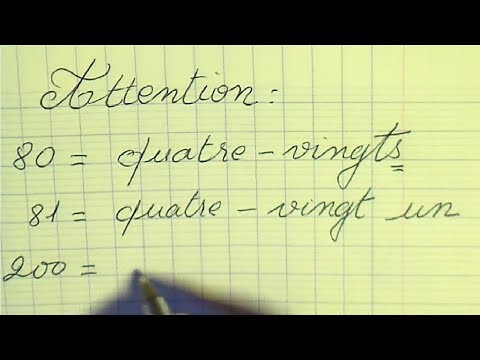 Attention :
80 = quatre-vingts
81 = quatre-vingt un
200 =